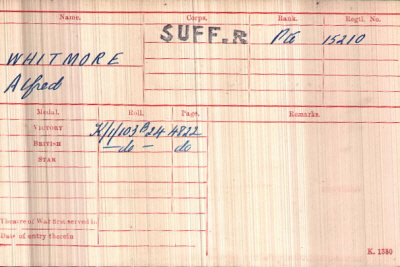 Name. Corps. Rank. Regtl. No.
SUFF.R Pte 15210
WHITMORE
Alfred
Medal. Roll. Page. Remarks.
VICTORY K/1/103B24 4822
BRITISH -do- do
STAR
Theatre of War first served in
Date of entry therein
K. 1380